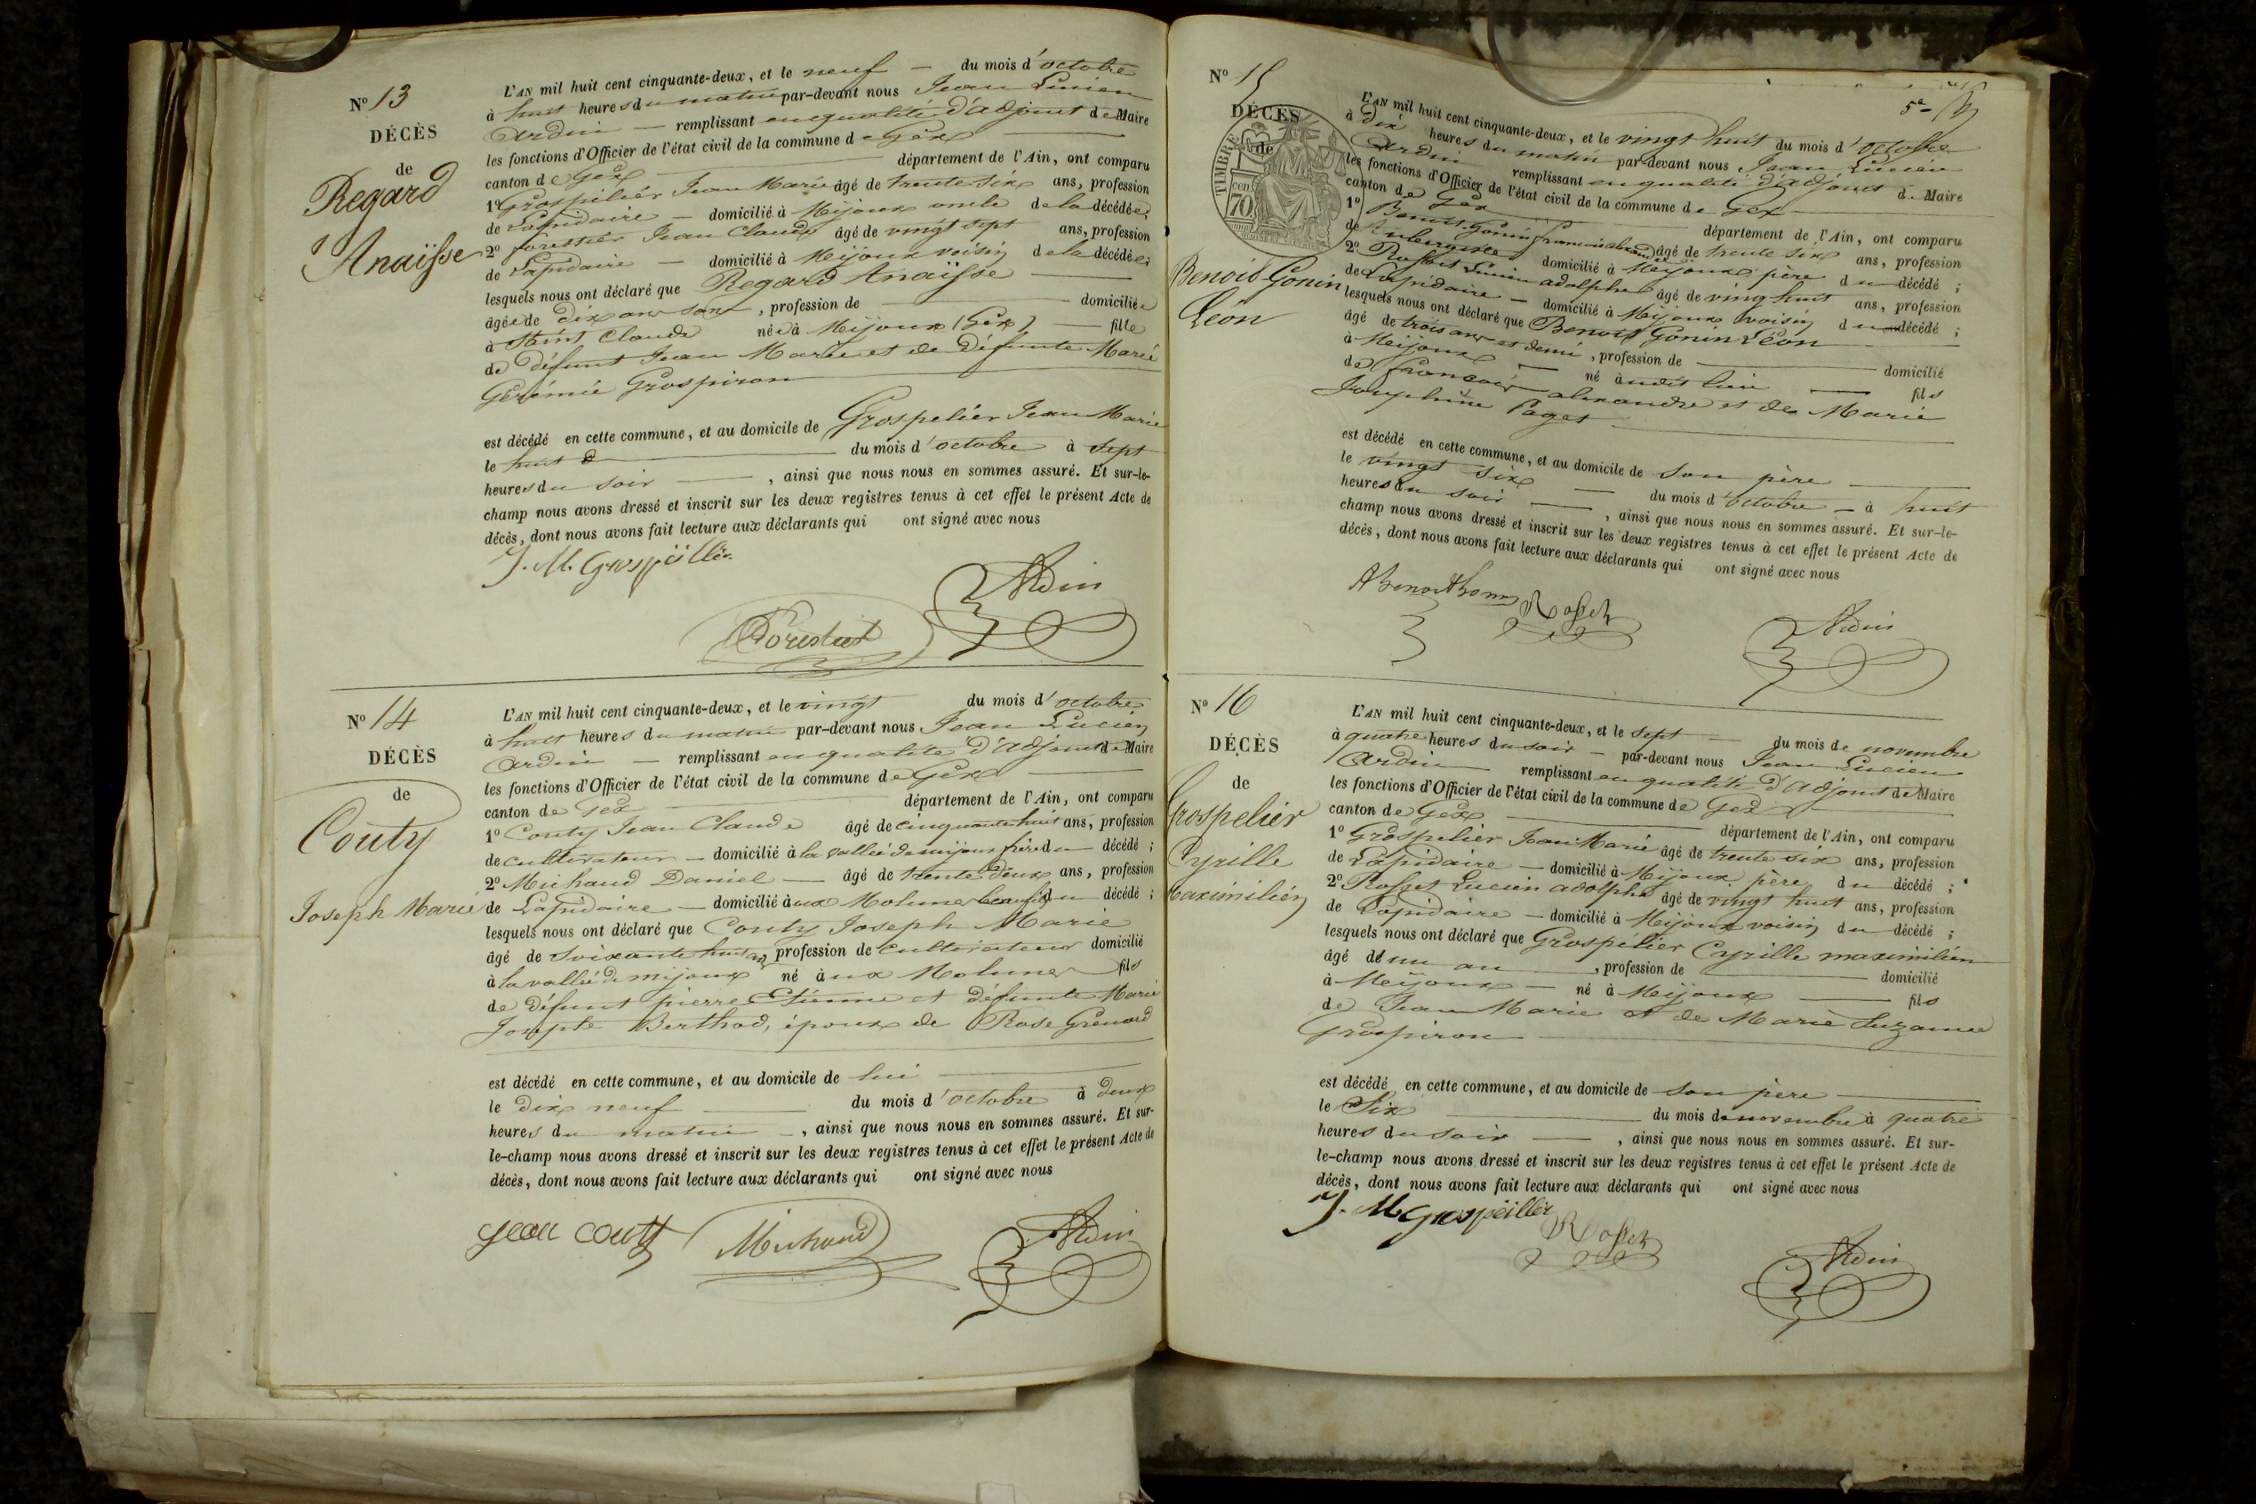 N° 13
DÉCÈS
de
Regard
Anaïsse
L'AN mil huit cent cinquante-deux, et le neuf du mois d'octobre
à huit heures du matin par-devant nous Jean Lucien
Ardin remplissant en qualité d'adjoint de Maire
les fonctions d'Officier de l'état civil de la commune de Gex
canton de Gex département de l'Ain, ont comparu
1° Grospelier Jean Marie âgé de trente six ans, profession
de Lapidaire domicilié à Mijoux oncle de la décédée;
2° forestier Jean Claude âgé de vingt sept ans, profession
de Lapidaire domicilié à Mijoux voisin de la décédée;
lesquels nous ont déclaré que Regard Anaïsse
âgée de dix ans sans, profession de domiciliée
à Saint Claude née à Mijoux (Gex) fille
de défunt Jean Marie et de défunte Marie
Gérémie Grospiron
est décédé en cette commune, et au domicile de Grospelier Jean Marie
le huit du mois d'octobre à sept
heures du soir, ainsi que nous nous en sommes assuré. Et sur-le-
champ nous avons dressé et inscrit sur les deux registres tenus à cet effet le présent Acte de
décès, dont nous avons fait lecture aux déclarants qui ont signé avec nous
J. M. Grospëiller
Ardin
N° 14
DÉCÈS
de
Couty
Joseph Marie
L'AN mil huit cent cinquante-deux, et le vingt du mois d'octobre
à huit heures du matin par-devant nous Jean Lucien
Ardin remplissant en qualité d'adjoint de Maire
les fonctions d'Officier de l'état civil de la commune de Gex
canton de Gex département de l'Ain, ont comparu
1° Couty Jean Claude âgé de cinquante huit ans, profession
de cultivateur domicilié à la vallée de mijoux frère du décédé;
2° Michaud Daniel âgé de trente deux ans, profession
de Lapidaire domicilié à aux Molunes beaufils du décédé;
lesquels nous ont déclaré que Couty Joseph Marie
âgé de soixante huit ans, profession de cultivateur domicilié
à la vallée de mijoux né à aux Molunes fils
de défunt pierre Etienne et défunte Marie
Josephte Berthod, époux de Rose Grenard
est décédé en cette commune, et au domicile de lui
le dix neuf du mois d'octobre à deux
heures du matin, ainsi que nous nous en sommes assuré. Et sur-
le-champ nous avons dressé et inscrit sur les deux registres tenus à cet effet le présent Acte de
décès, dont nous avons fait lecture aux déclarants qui ont signé avec nous
jean couty Michaud Ardin
N° 15
DÉCÈS
de
TIMBRE
70
Benoit Gonin
Léon
L'AN mil huit cent cinquante-deux, et le vingt huit du mois d'octobre
à dix heures du matin par-devant nous Jean Lucien
Ardin remplissant en qualité d'adjoint de Maire
les fonctions d'Officier de l'état civil de la commune de Gex
canton de Gex département de l'Ain, ont comparu
1° Benoit Gonin françois alexandre âgé de trente six ans, profession
de Aubergiste domicilié à Mijoux père du décédé;
2° Rosset Lucien adolphe âgé de vingt huit ans, profession
de Lapidaire domicilié à Mijoux voisin du décédé;
lesquels nous ont déclaré que Benoit Gonin Léon
âgé de trois ans et demi, profession de domicilié
à Mijoux né à udit lieu fils
de françois alexandre et de Marie
Josephine Paget
est décédé en cette commune, et au domicile de son père
le vingt six du mois d'octobre à huit
heures du soir, ainsi que nous nous en sommes assuré. Et sur-le-
champ nous avons dressé et inscrit sur les deux registres tenus à cet effet le présent Acte de
décès, dont nous avons fait lecture aux déclarants qui ont signé avec nous
Rosset Ardin
N° 16
DÉCÈS
de
Grospelier
Cyrille
Maximilien
L'AN mil huit cent cinquante-deux, et le sept du mois de novembre
à quatre heures du soir par-devant nous Jean Lucien
Ardin remplissant en qualité d'adjoint de Maire
les fonctions d'Officier de l'état civil de la commune de Gex
canton de Gex département de l'Ain, ont comparu
1° Grospelier Jean Marie âgé de trente six ans, profession
de Lapidaire domicilié à Mijoux père du décédé;
2° Rosset Lucien adolphe âgé de vingt huit ans, profession
de Lapidaire domicilié à Mijoux voisin du décédé;
lesquels nous ont déclaré que Grospelier Cyrille maximilien
âgé d'un an, profession de domicilié
à Mijoux né à Mijoux fils
de Jean Marie et de Marie Suzanne
Grospiron
est décédé en cette commune, et au domicile de son père
le Six du mois de novembre à quatre
heures du soir, ainsi que nous nous en sommes assuré. Et sur-
le-champ nous avons dressé et inscrit sur les deux registres tenus à cet effet le présent Acte de
décès, dont nous avons fait lecture aux déclarants qui ont signé avec nous
J. M. Grospëiller Rosset Ardin